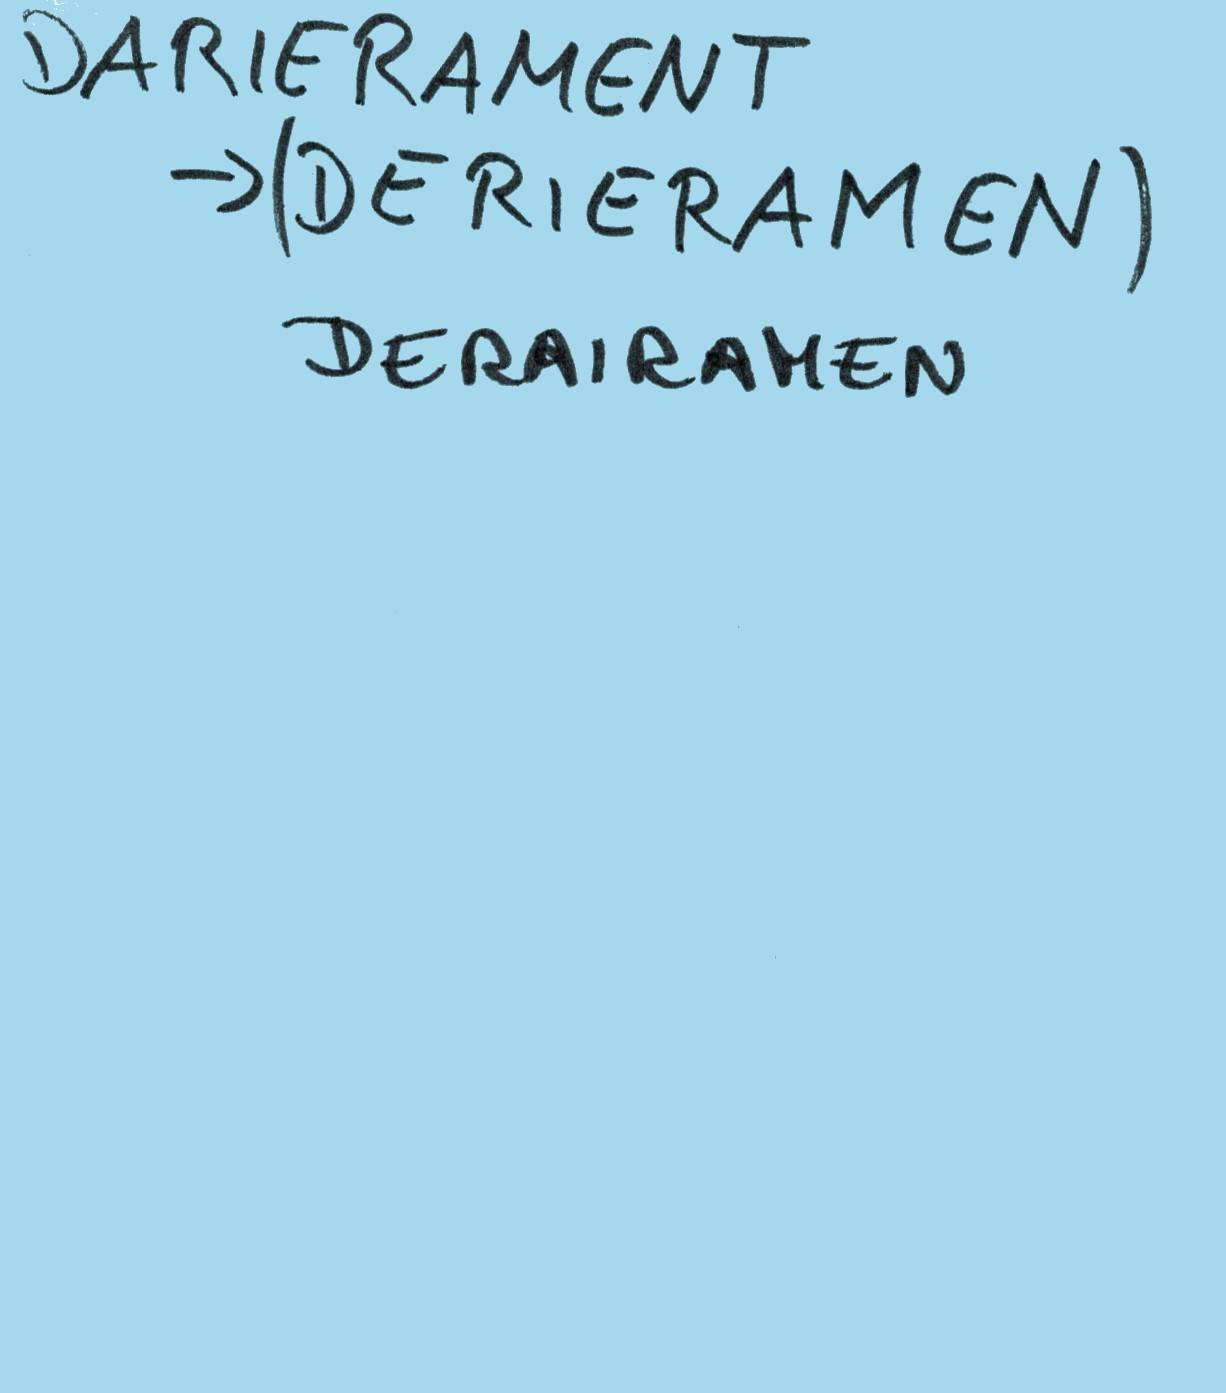 DARIERAMENT
→(DERIERAMEN)
DERAIRAMEN